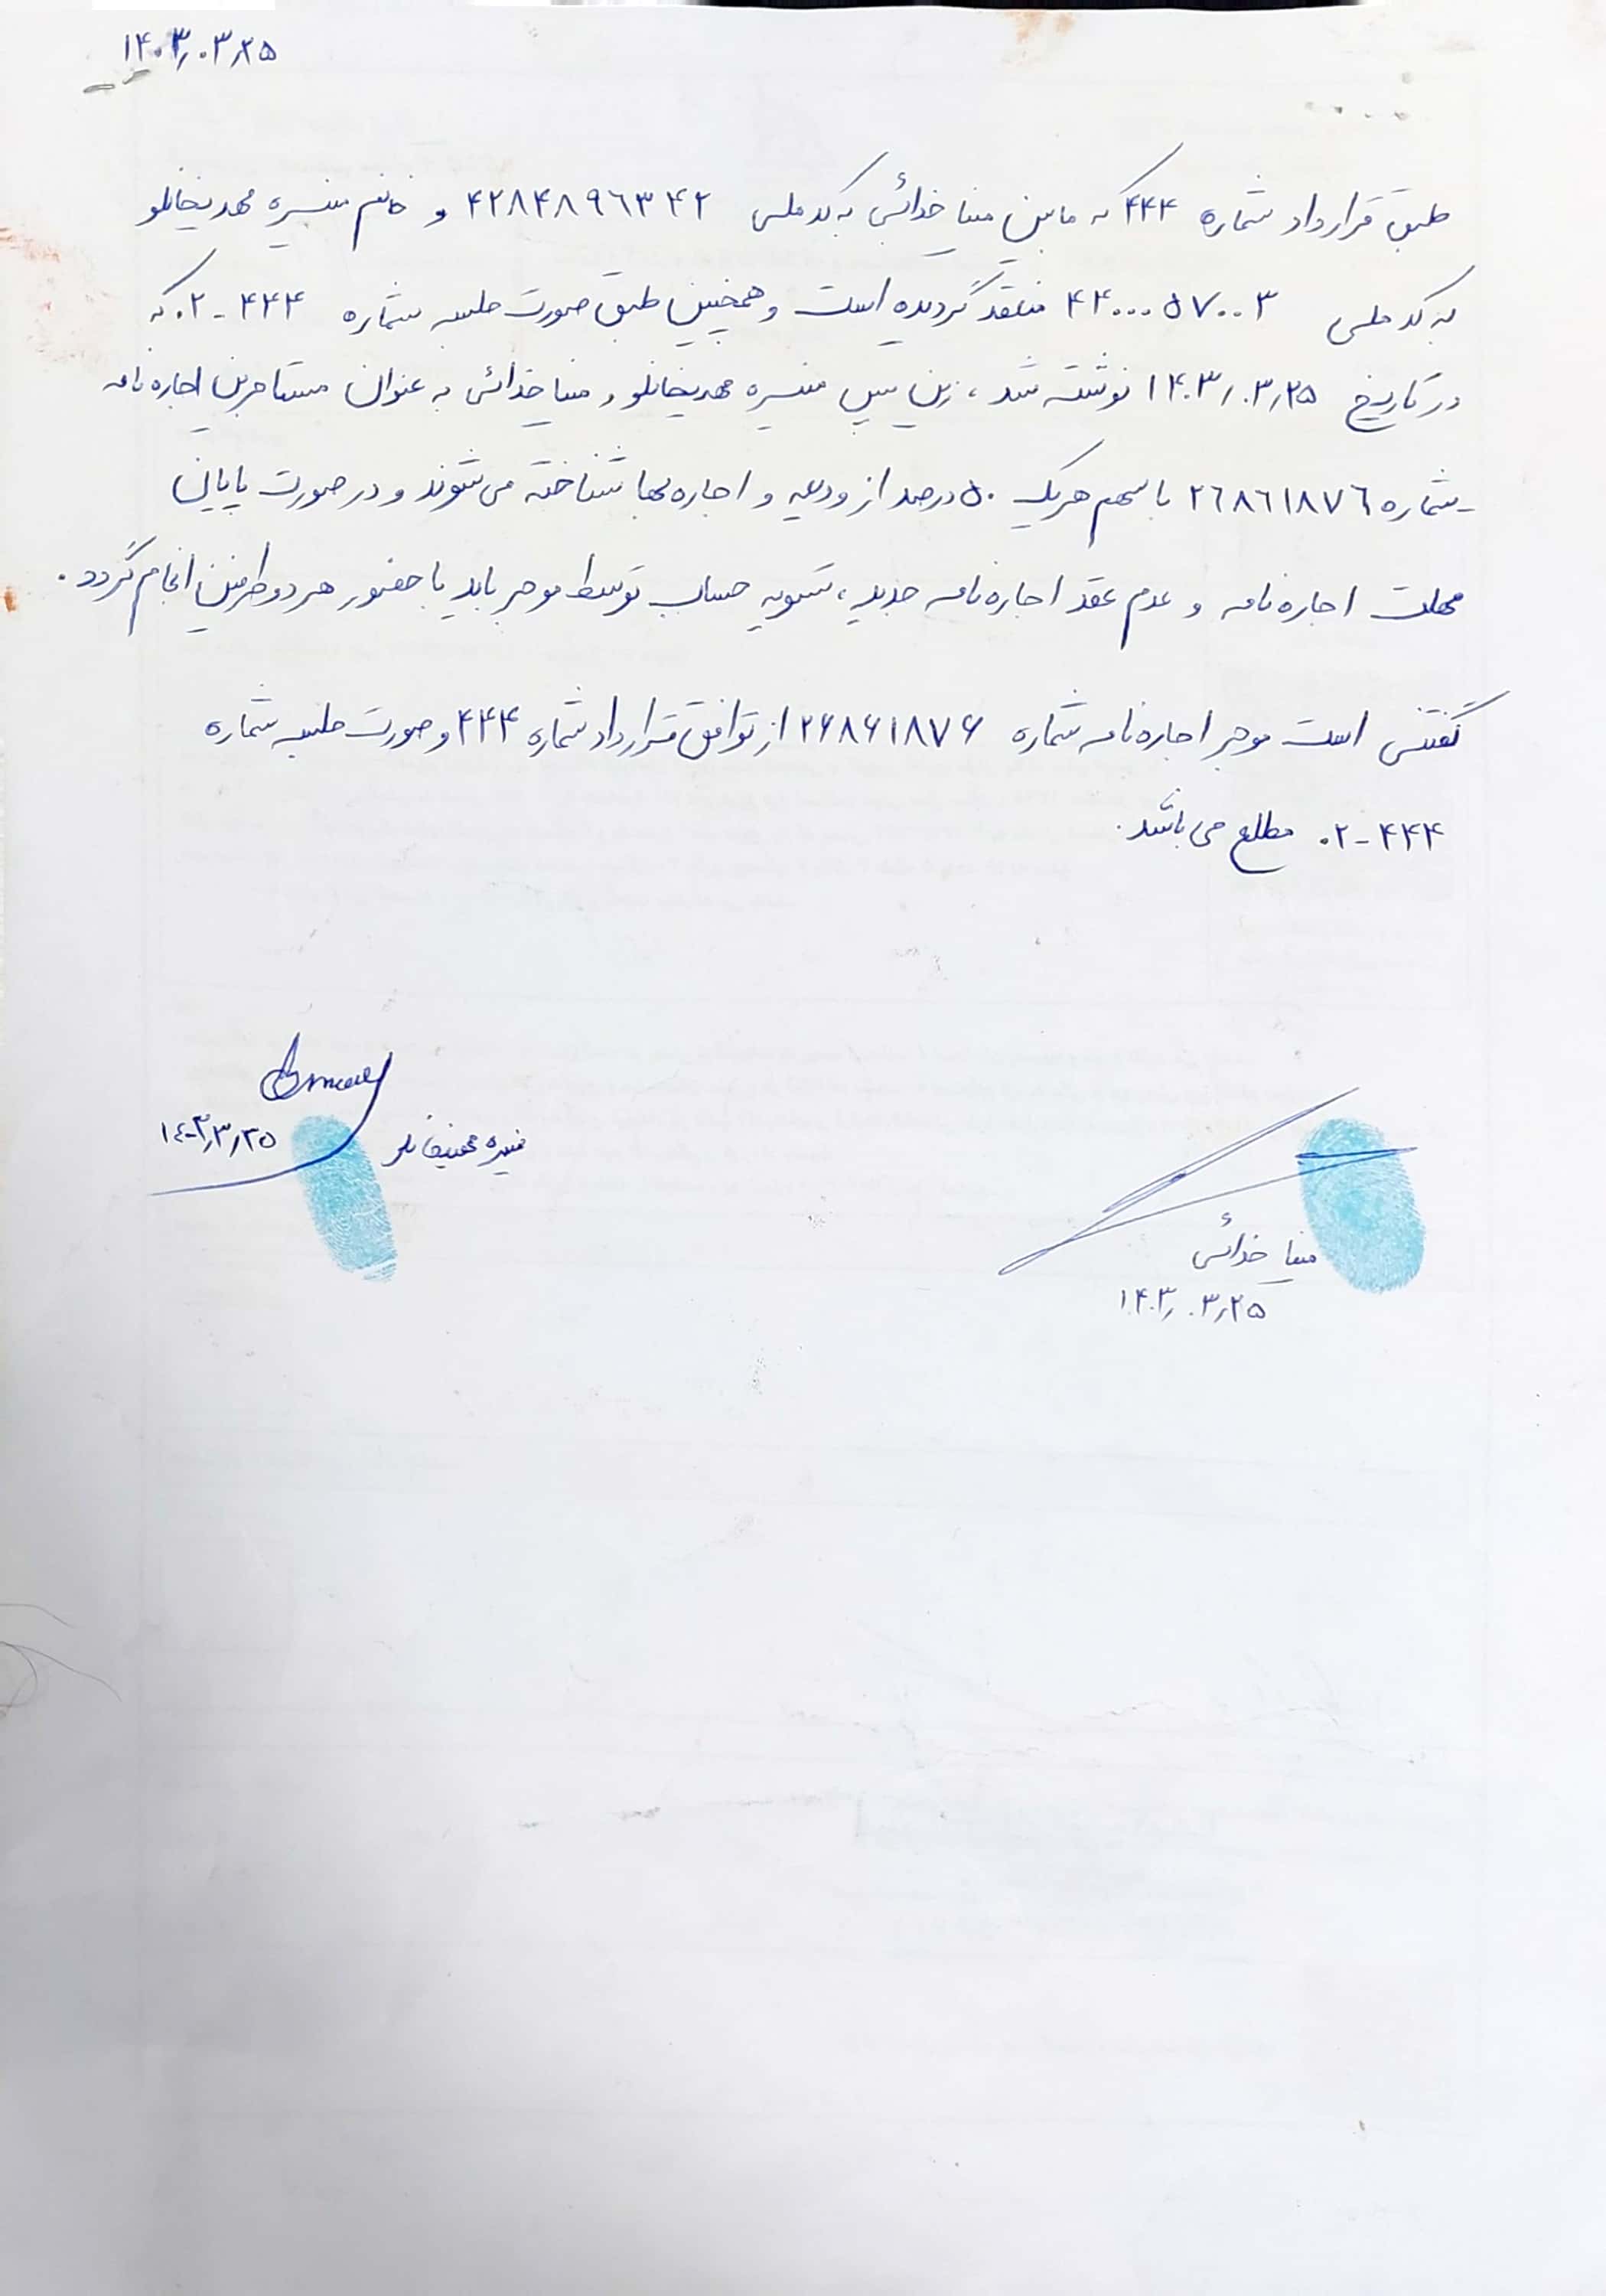 ۱۴۰۳/۰۳/۲۵
طبق قرارداد شماره ۴۴۴ که مابین مینا خدائی به کد ملی ۴۲۸۴۸۹۶۳۴۲ و خانم منیره مهدیخانلو
به کد ملی ۴۴۰۰۰۵۷۰۰۳ منعقد گردیده است و همچنین طبق صورت جلسه شماره ۴۴۴-۰۲ که
در تاریخ ۱۴۰۳/۰۳/۲۵ نوشته شد، زین پس منیره مهدیخانلو و مینا خدائی به عنوان مستاجرین اجاره نامه
شماره ۲۶۸۶۱۸۷۶ با سهم هریک ۵۰ درصد از ودیعه و اجاره بها شناخته می شوند و در صورت پایان
مهلت اجاره نامه و عدم عقد اجاره نامه جدید، تسویه حساب توسط موجر باید با حضور هر دو طرفین انجام گردد.
گفتنی است موجر اجاره نامه شماره ۲۶۸۶۱۸۷۶ از توافق قرارداد شماره ۴۴۴ و صورت جلسه شماره
۴۴۴-۰۲ مطلع می باشد.
منیره مهدیخانلو
۱۴۰۳/۳/۲۵
مینا خدائی
۱۴۰۳/۰۳/۲۵